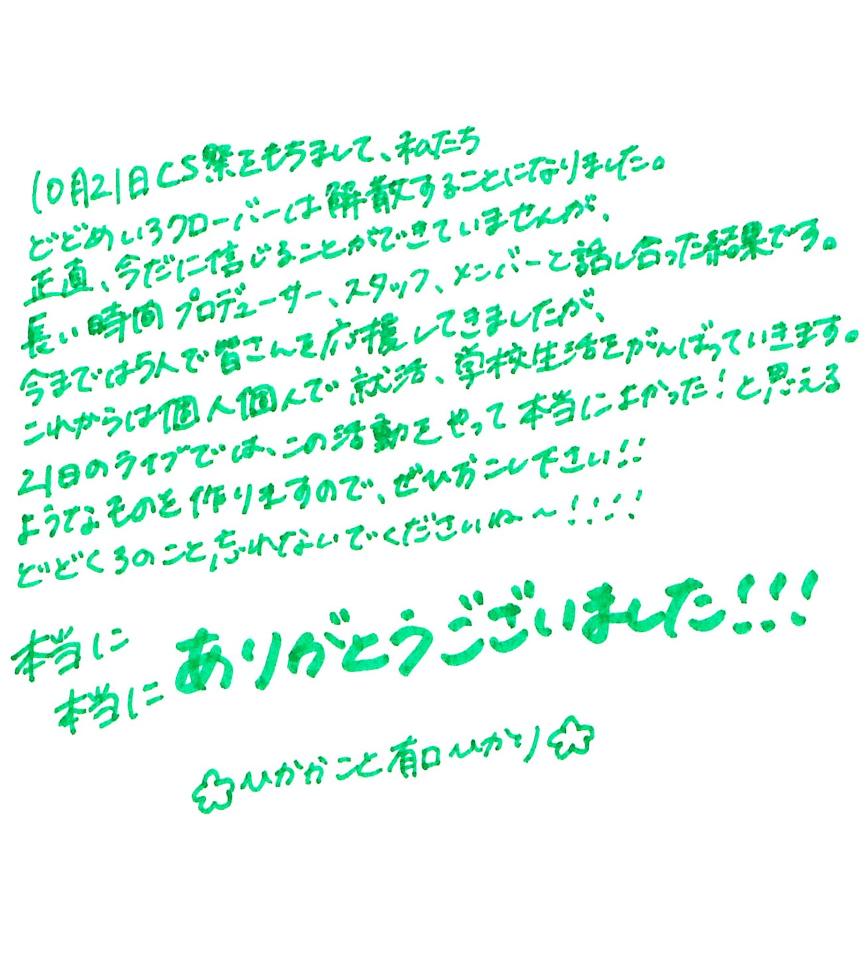 10月21日CS祭をもちまして、私たち
どどめいろクローバーは解散することになりました。
正直、今だに信じることができていませんが、
長い時間プロデューサー、スタッフ、メンバーと話し合った結果です。
今までは5人で皆さんを応援してきましたが、
これからは個人個人で就活、学校生活をがんばっていきます。
21日のライブでは、この活動をやって本当によかった！と思える
ようなものを作りますので、ぜひおこし下さい!!
どどくろのこと、忘れないでくださいね〜!!!!
本当に
本当にありがとうございました!!!
ひかかこと有口ひかり